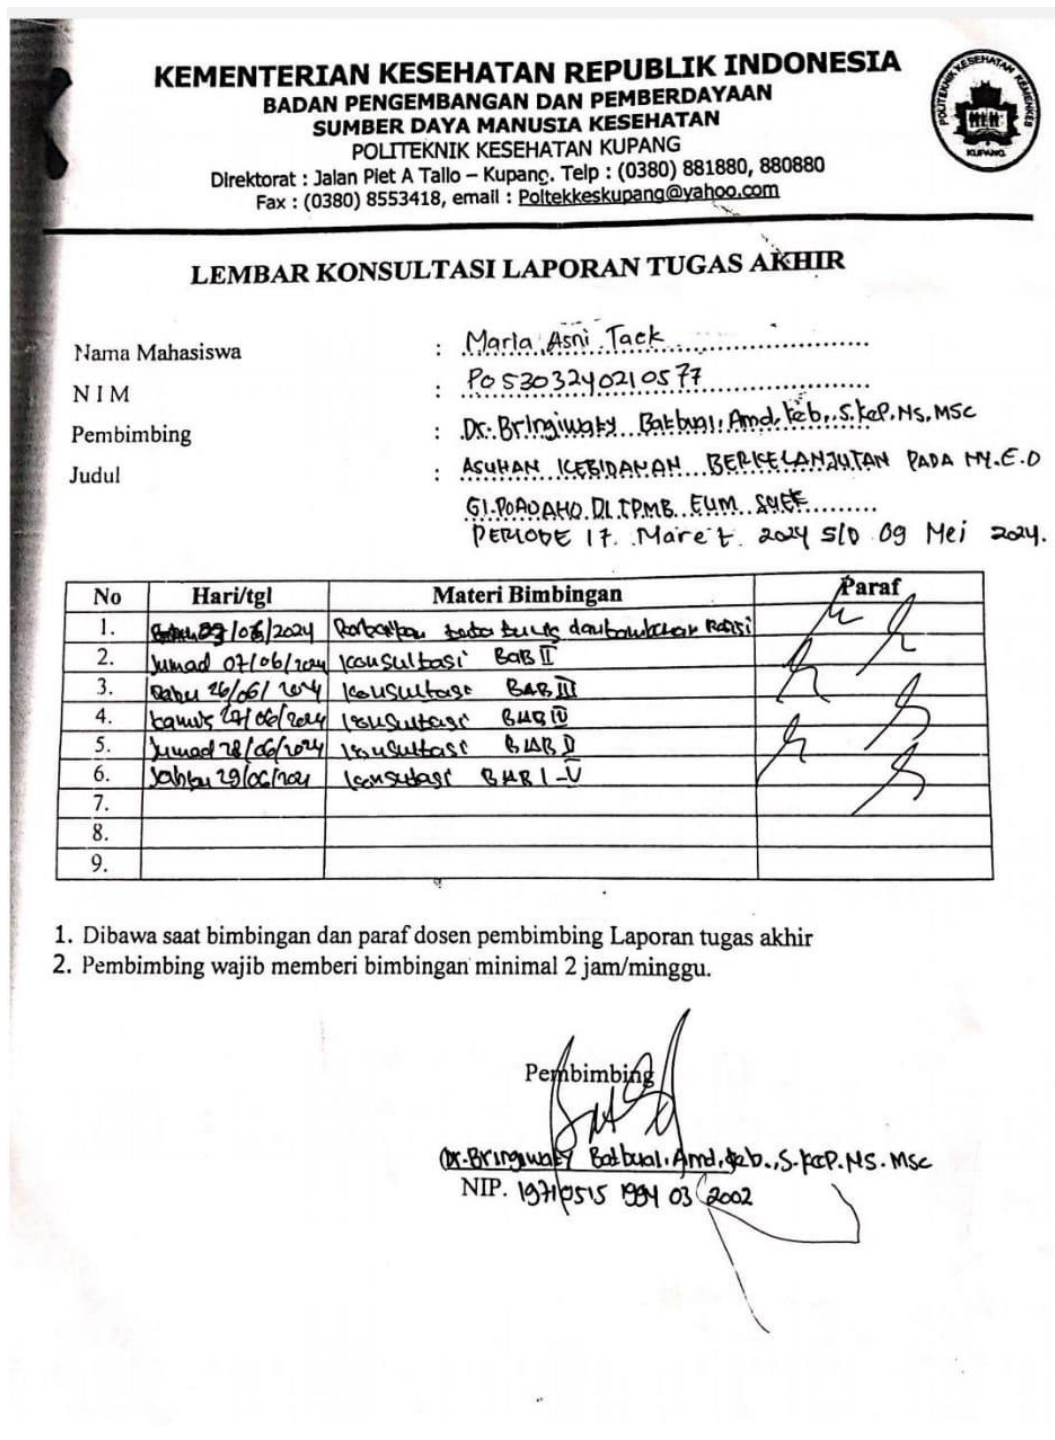 KEMENTERIAN KESEHATAN REPUBLIK INDONESIA
BADAN PENGEMBANGAN DAN PEMBERDAYAAN
SUMBER DAYA MANUSIA KESEHATAN
POLITEKNIK KESEHATAN KUPANG
Direktorat : Jalan Piet A Tallo – Kupang. Telp : (0380) 881880, 880880
Fax : (0380) 8553418, email : Poltekkeskupang@yahoo.com
POLITEKNIK KESEHATAN KEMENKES
KUPANG
LEMBAR KONSULTASI LAPORAN TUGAS AKHIR
Nama Mahasiswa : Maria Asni Taek
N I M : PO5303240210577
Pembimbing : Dr. Bringiwaty Batbual, Amd, Keb., S.Kep, Ns, MSc
Judul : ASUHAN KEBIDANAN BERKELANJUTAN PADA NY.E.O
G1.P0A0AH0 DI TPMB
PERIODE 17 Maret 2024 S/D 09 Mei 2024.
No Hari/tgl Materi Bimbingan Paraf
1. /2024 Perbaikan tata tulis dan
2. Jumad 07/06/2024 Konsultasi BAB II
3. Rabu 26/06/2024 Konsultasi BAB III
4. Kamis 27/06/2024 Konsultasi BAB IV
5. Jumad 28/06/2024 Konsultasi BAB V
6. Sabtu 29/06/2024 Konsultasi BAB I-V
7.
8.
9.
1. Dibawa saat bimbingan dan paraf dosen pembimbing Laporan tugas akhir
2. Pembimbing wajib memberi bimbingan minimal 2 jam/minggu.
Pembimbing
Dr. Bringiwaty Batbual, Amd, Keb., S.Kep. NS. MSc
NIP. 19710515 1994 03 2002